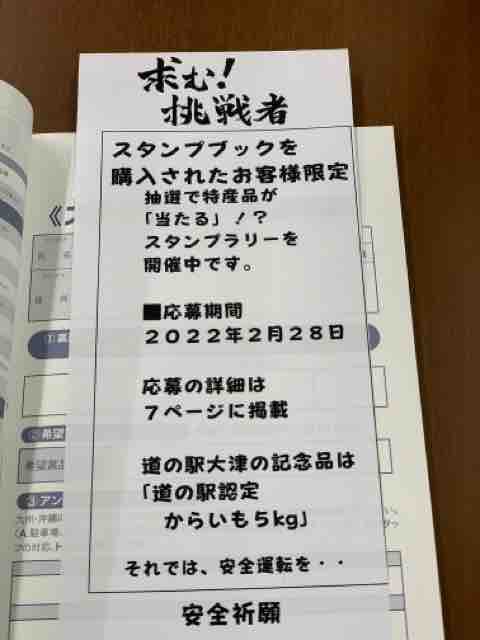 求む!
挑戦者
スタンプブックを
購入されたお客様限定
抽選で特産品が
「当たる」!?
スタンプラリーを
開催中です。
■応募期間
2022年2月28日
応募の詳細は
7ページに掲載
道の駅大津の記念品は
「道の駅認定
からいも5kg」
それでは、安全運転を・・
安全祈願
②希望
希望賞品
③アン
九州・沖縄